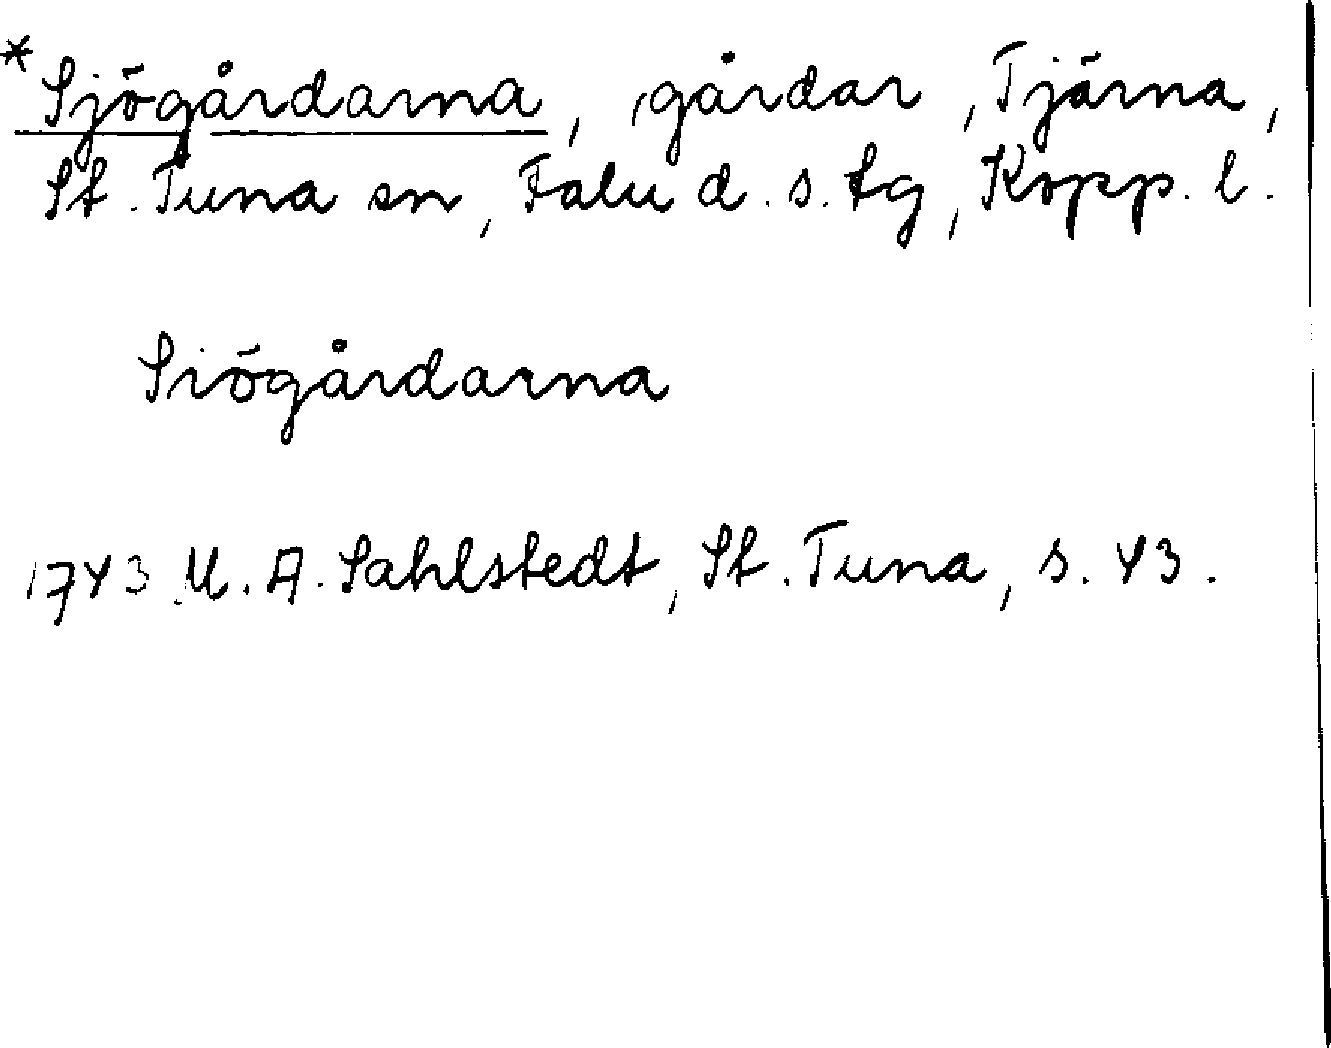 *Sjögårdarna, gårdar, Tjärna,
St. Tuna sn, Falu d. s. tg, Kopp. l.
Siögårdarna
1743 U. A. Sahlstedt, St. Tuna, s. 43.